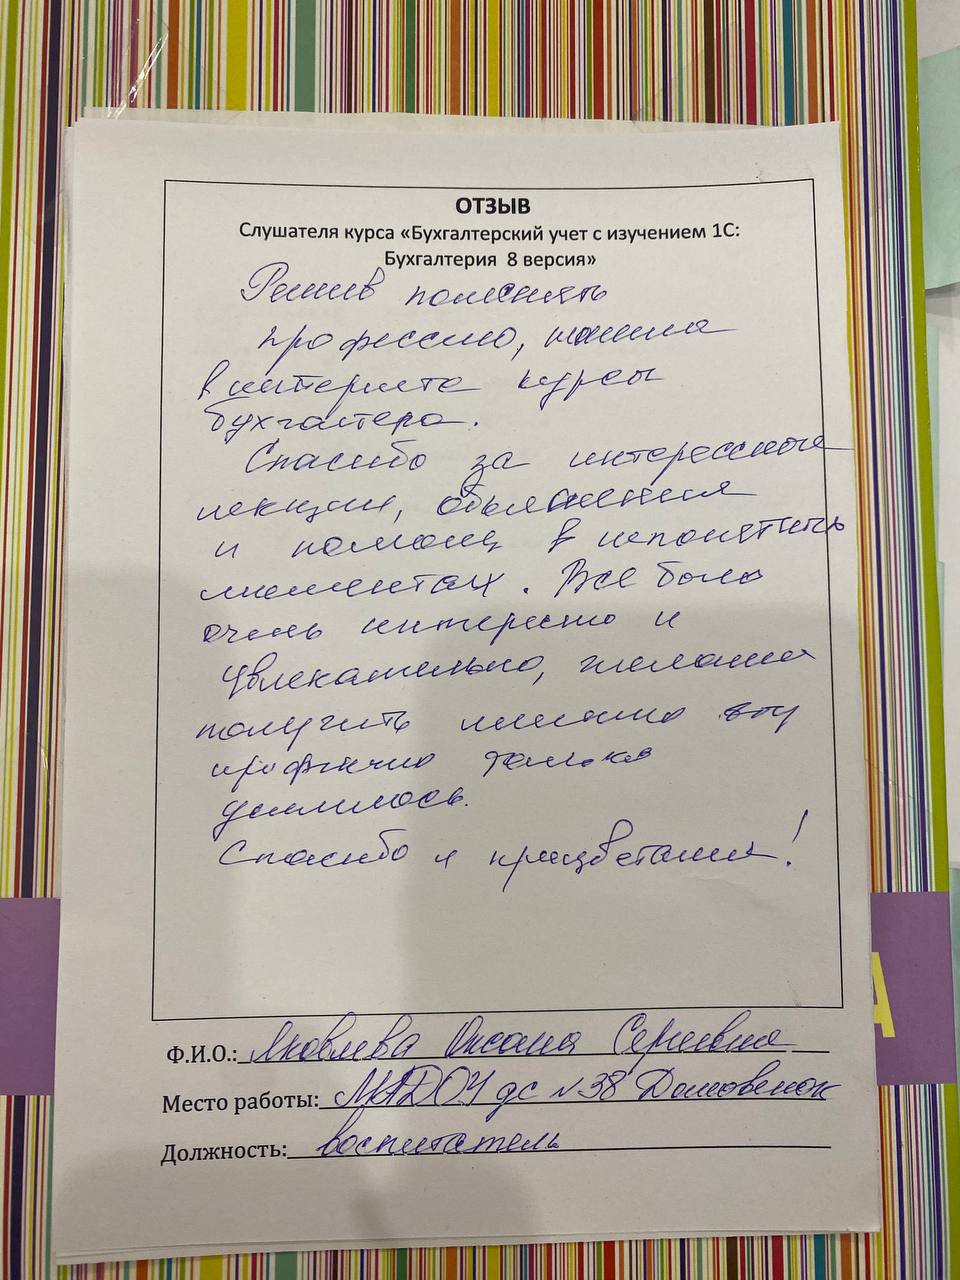 ОТЗЫВ
Слушателя курса «Бухгалтерский учет с изучением 1С:
Бухгалтерия 8 версия»
Решив поменять
профессию, нашла
в интернете курсы
бухгалтера.
Спасибо за интересные
лекции, объяснения
и помощь в непонятных
моментах. Все было
очень интересно и
увлекательно, желание
получить именно эту
профессию только
усилилось.
Спасибо и процветания!
А
Ф.И.О.: Яковлева Оксана Сергеевна
Место работы: МАДОУ дс №38 Домовенок
Должность: воспитатель